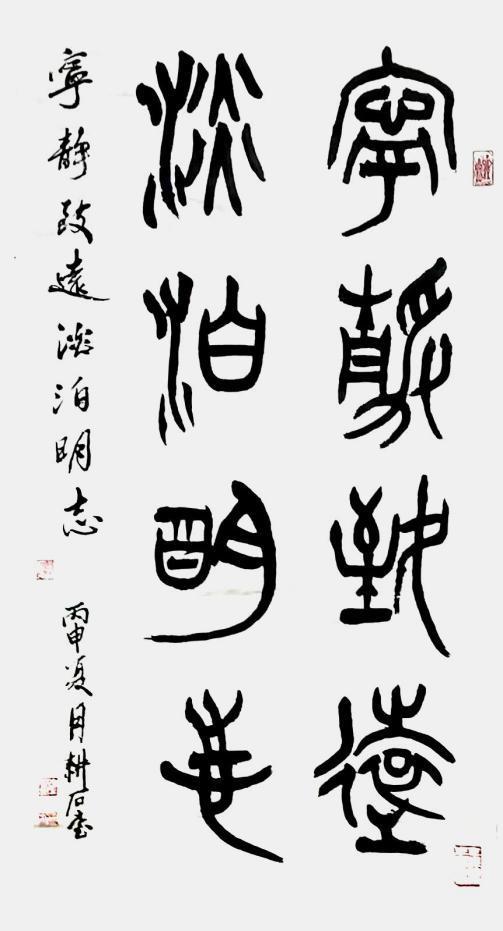 寧靜致遠
淡泊明志
寧靜致遠淡泊明志
丙申夏月耕石堂